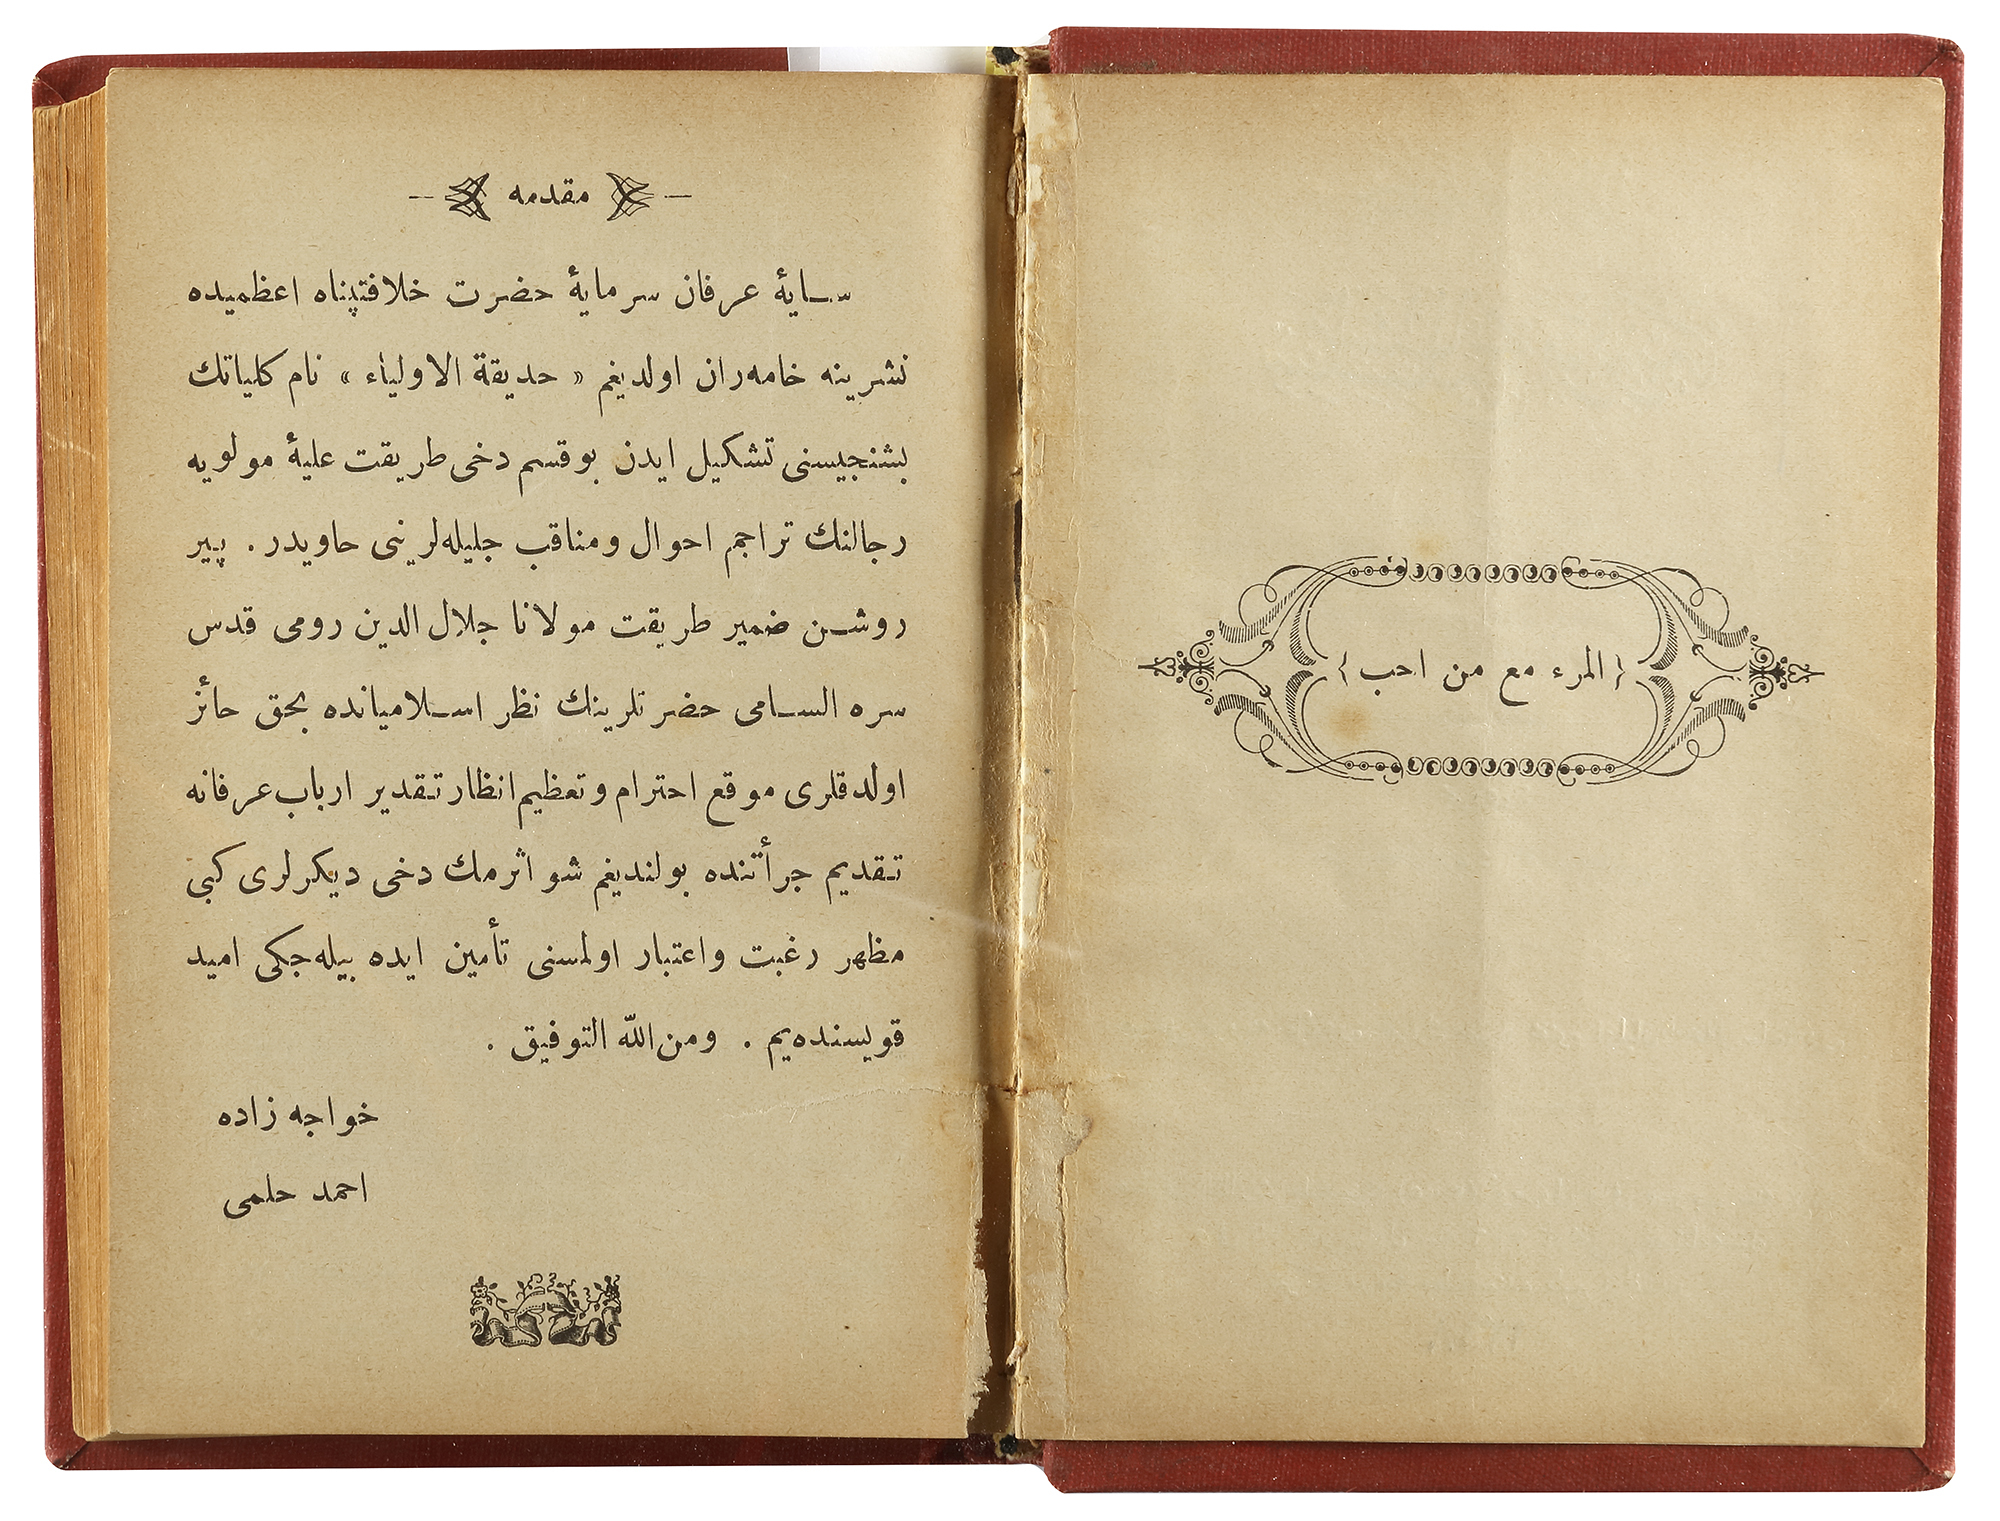 { المرء مع من احب }
مقدمه
سایهٔ عرفان سرمایهٔ حضرت خلافتپناه اعظمیده
نشرینه خامه‌ران اولدیغم « حدیقة الاولیاء » نام کلیاتك
بشنجیسنی تشکیل ایدن بوقسم دخی طریقت علیهٔ مولویه
رجالنك تراجم احوال ومناقب جلیله‌لرینی حاویدر . پیر
روشن ضمیر طریقت مولانا جلال الدین رومی قدس
سره السامی حضرتلرینك نظر اسلامیانده بحق حائز
اولدقلری موقع احترام وتعظیم انظار تقدیر ارباب عرفانه
تقدیم جرأتنده بولندیغم شو اثرمك دخی دیکرلری کبی
مظهر رغبت واعتبار اولمسنی تأمین ایده بیله‌جکی امید
قویسنده‌یم . ومن الله التوفیق .
خواجه زاده
احمد حلمی